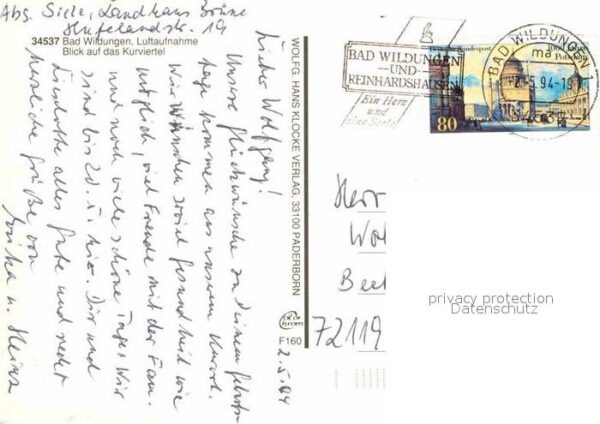 Abs. Siele, Landhaus Börne
Hufelandstr. 19
34537 Bad Wildungen, Luftaufnahme
Blick auf das Kurviertel
Lieber Wolfgang!
Unsere Glückwünsche zu Deinem Geburts-
tage kommen aus unserem Kurort.
Wir Wünschen soviel Gesundheit wie
möglich, viel Freude mit der Fam.
und noch viele schöne Tage. Wir
sind bis 20.5. hier. Dir und
alles Gute und recht
herzliche Grüße von
Erika u. Heinz
2.5.94
WOLFG. HANS KLOCKE VERLAG, 33100 PADERBORN
F160
BAD WILDUNGEN
UND
REINHARDSHAUSEN
Ein Herz
und
eine Seele
Deutsche Bundespost
1000 Jahre
Potsdam
80
BAD WILDUNGEN 1
ma
.5.94-19
34537
Herr
Wol
Beet
72119
privacy protection
Datenschutz